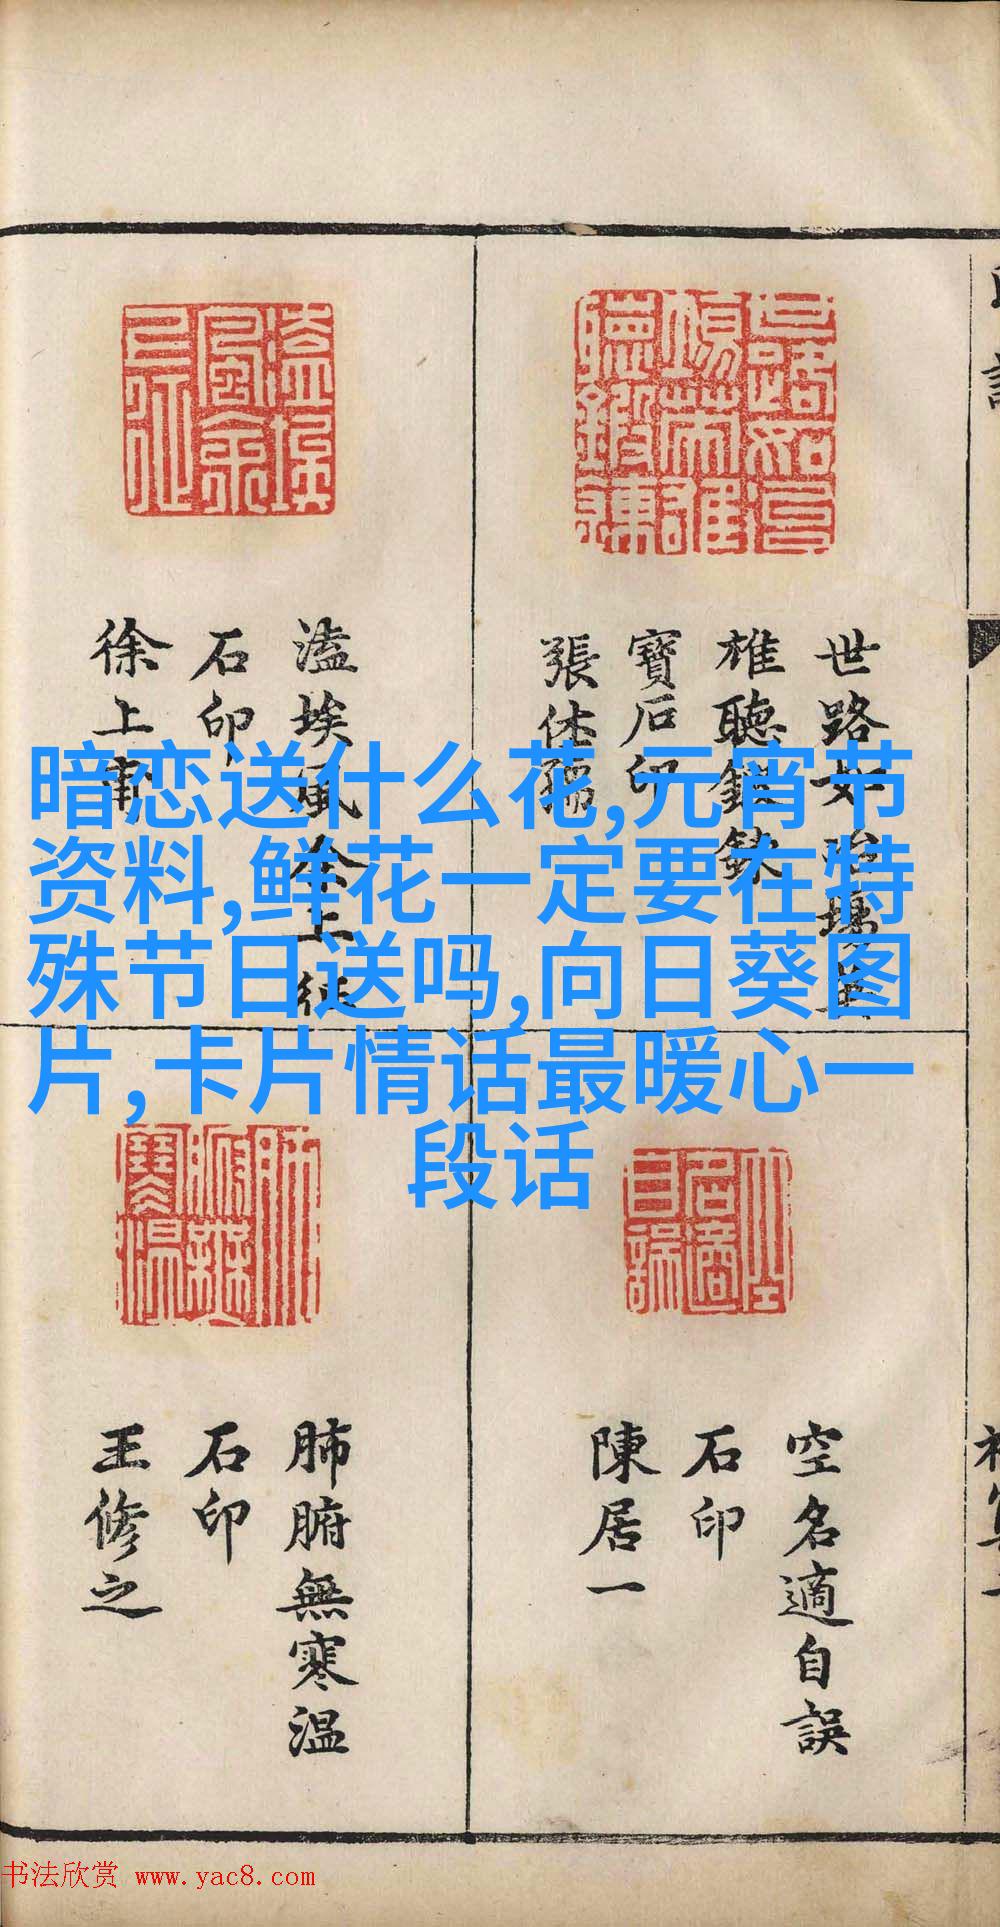 世路如冶場英
雄聽鍛鍊
寶石印
張休孺
溘埃風余上征
石印
徐上甫
暗恋送什么花,元宵节
资料,鲜花一定要在特
殊节日送吗,向日葵图
片,卡片情话最暖心一
段话
空名適自誤
石印
陳居一
肺腑無寒温
石印
王修之
书法欣赏 www.yac8.com